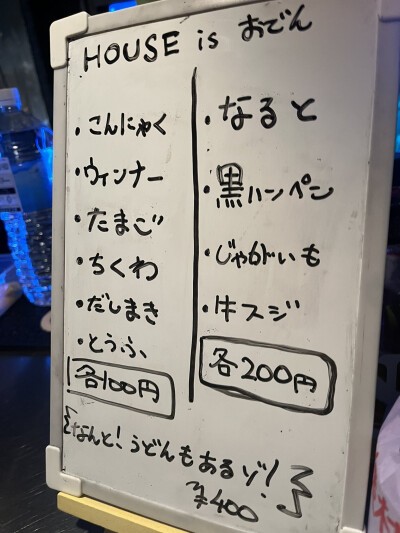 HOUSE is おでん
・こんにゃく
・ウィンナー
・たまご
・ちくわ
・だしまき
・とうふ
各100円
・なると
・黒ハンペン
・じゃがいも
・牛スジ
各200円
なんと!うどんもあるゾ!
¥400